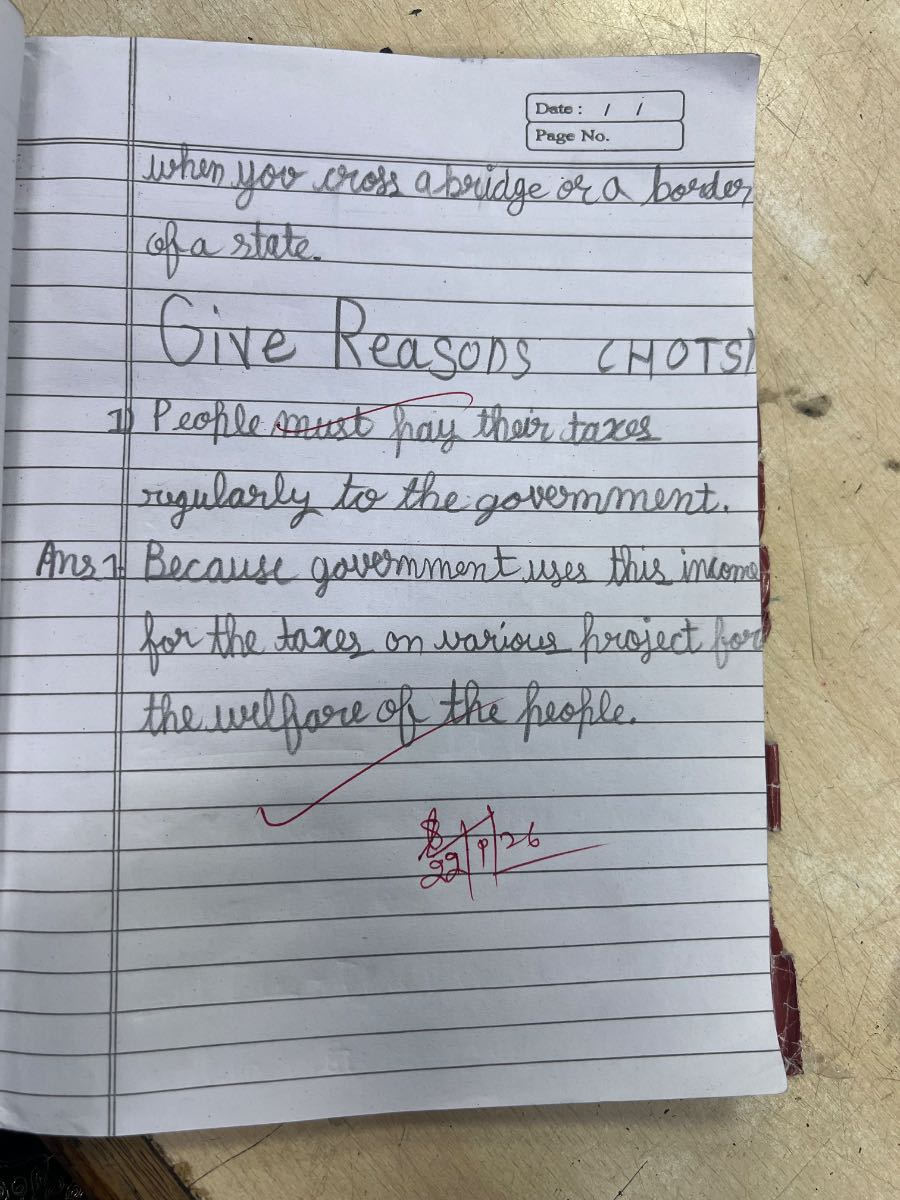 Date : / /
Page No.
when you cross a bridge or a border
of a state.
Give Reasons (HOTS)
1) People must pay their taxes
regularly to the government.
Ans 1 Because government uses this income
for the taxes on various project for
the welfare of the people.
22/1/26